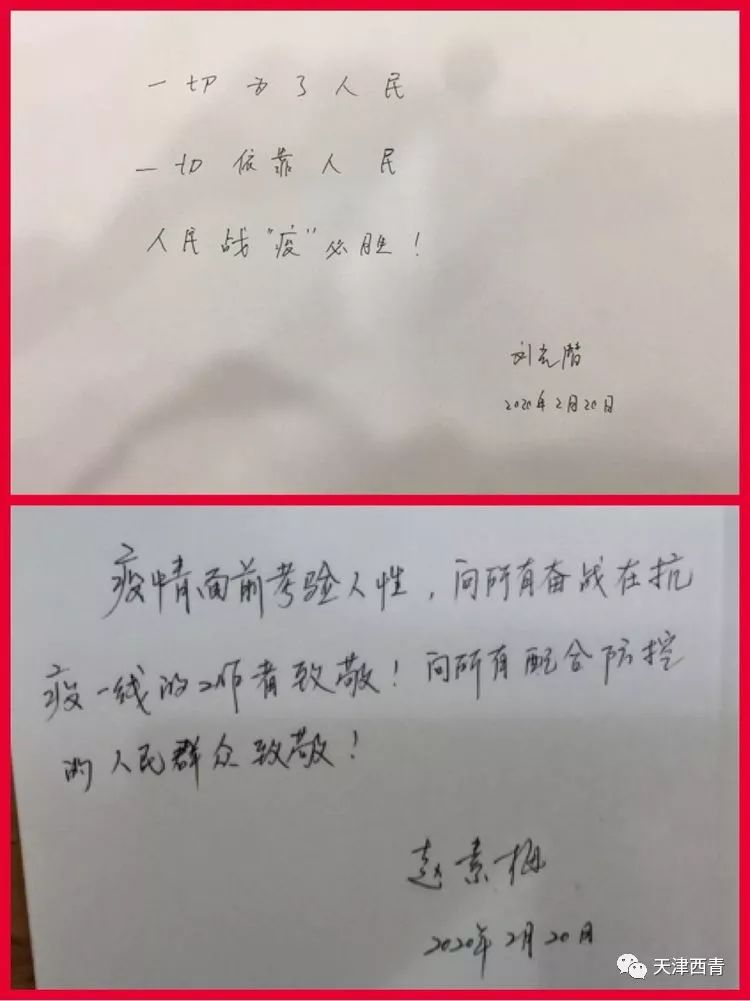 一切为了人民
一切依靠人民
人民战“疫”必胜！
刘克潜
2020年2月20日
疫情面前考验人性，向所有奋战在抗
疫一线的工作者致敬！向所有配合防控
的人民群众致敬！
赵素梅
2020年2月20日
天津西青